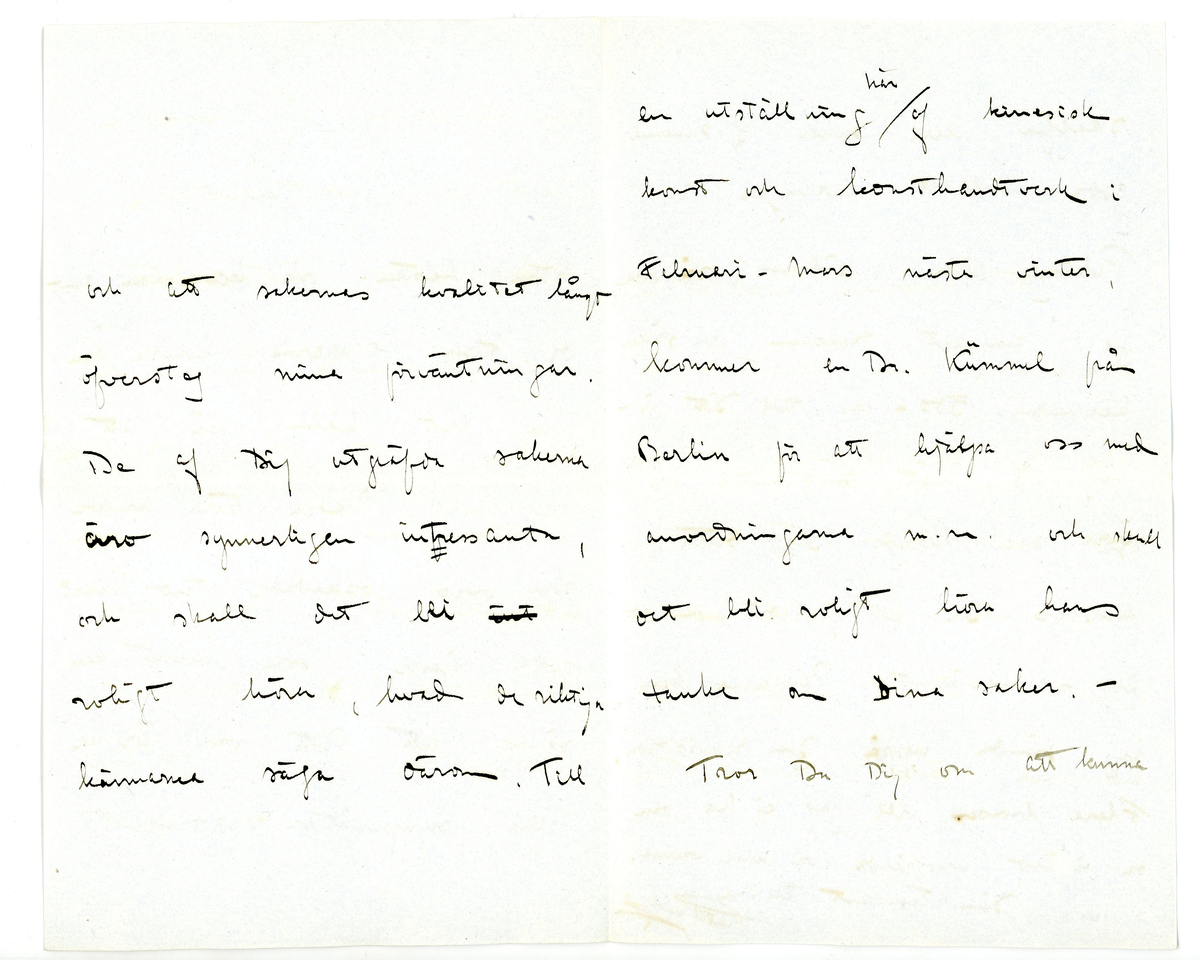 och att sakernas kvalitet långt
öfversteg mina förväntningar.
De af Dig utgräfda sakerna
äro synnerligen intressanta,
och skall det bli
roligt höra, hvad de riktiga
kännarna säga därom. Till
en utställning här af kinesisk
konst och konsthandtverk i
Februari - Mars nästa vinter,
kommer en Dr. Kümmel från
Berlin för att hjälpa oss med
anordningarna m.m. och skall
det bli roligt höra hans
tanke om Dina saker. —
Tror Du Dig om att kunna